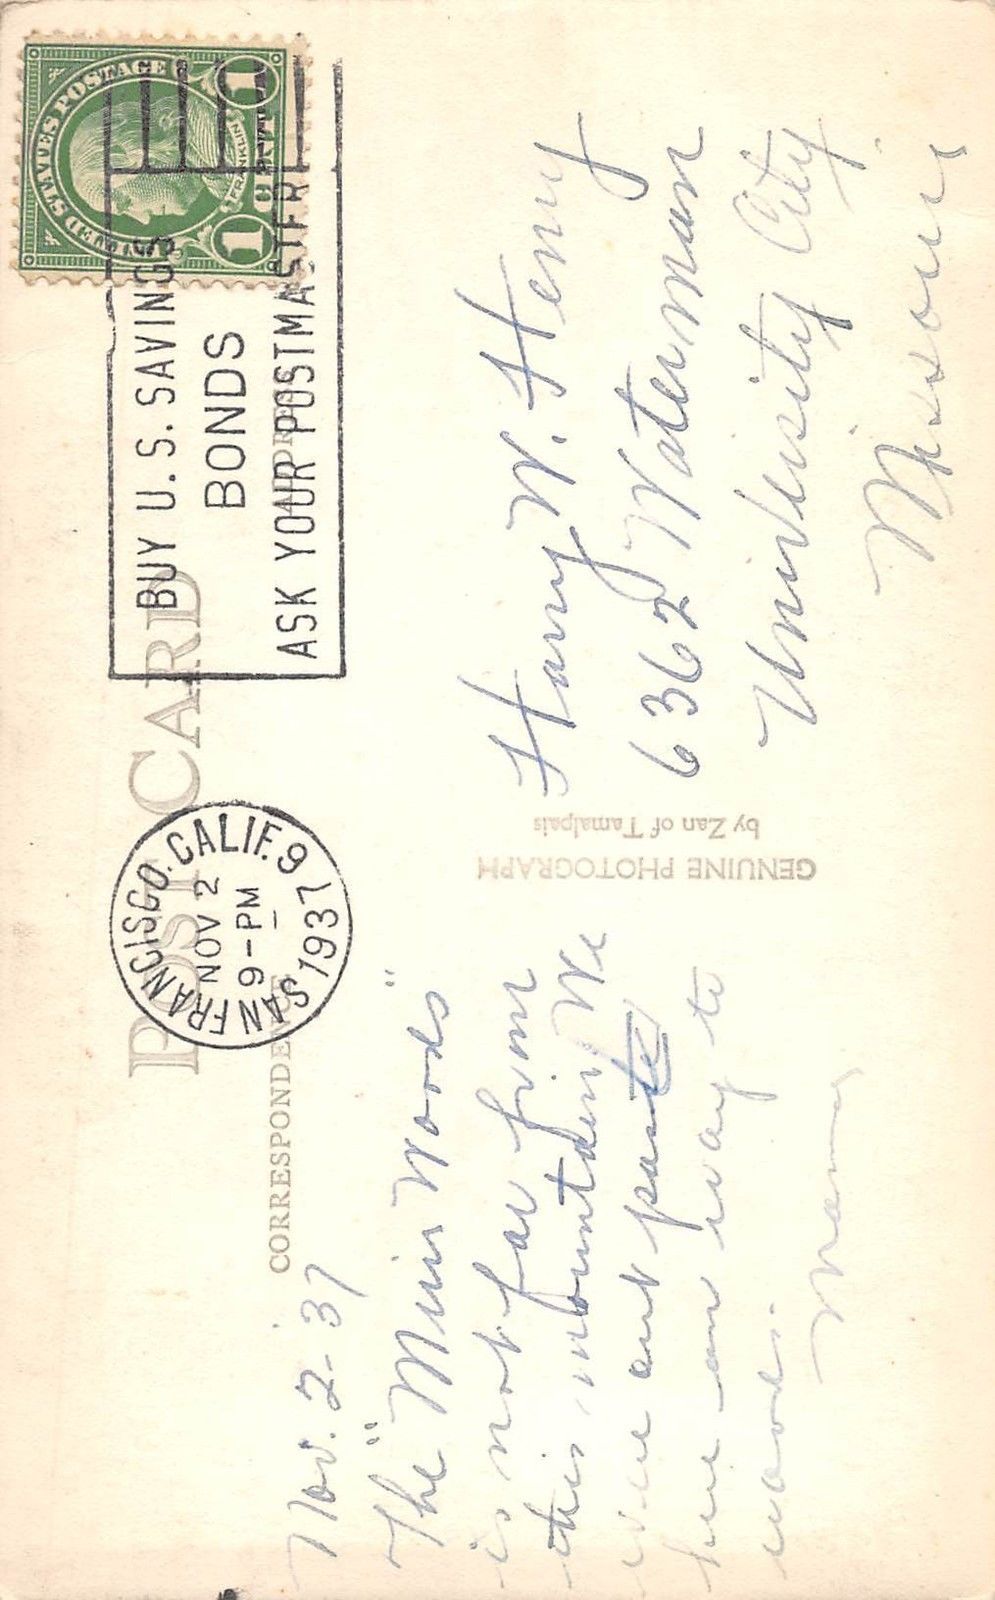 POST CARD
CORRESPONDENCE
ADDRESS
SAN FRANCISCO. CALIF. 9
NOV 2
9-PM
1937
BUY U.S. SAVINGS
BONDS
ASK YOUR POSTMASTER
UNITED STATES POSTAGE
FRANKLIN
1 CENT 1
Nov. 2-37
The "Muir Woods"
is not far from
this mountain We
were out past
here on way to
woods.
Mamy
GENUINE PHOTOGRAPH
by Zan of Tamalpais
Harry W. Henry
6362 Waterman
University City
Missouri